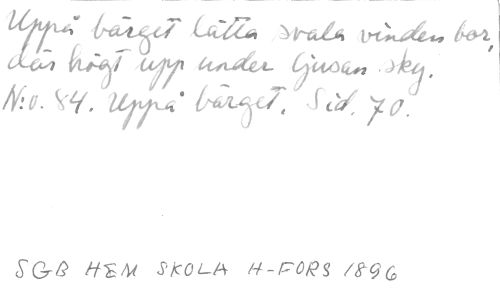 Uppå bärget lätta svala vinden bor,
där högt upp under ljusan sky.
N:o. 84. Uppå bärget. Sid. 70.
SGB HEM SKOLA H-FORS 1896